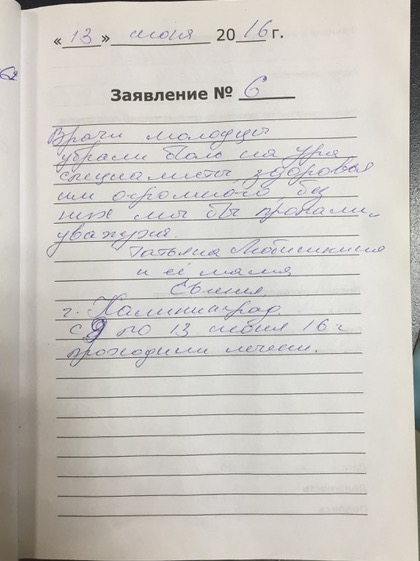 «13» июня 2016 г.
Заявление № 6
Врачи молодцы
убрали боль на ура
специалисты здоровья
им огромного, без
них мы бы пропали.
уважуха
Татьяна
и её мама
г. Калининград
с 9 по 13 июня 16 г
проходили лечение.